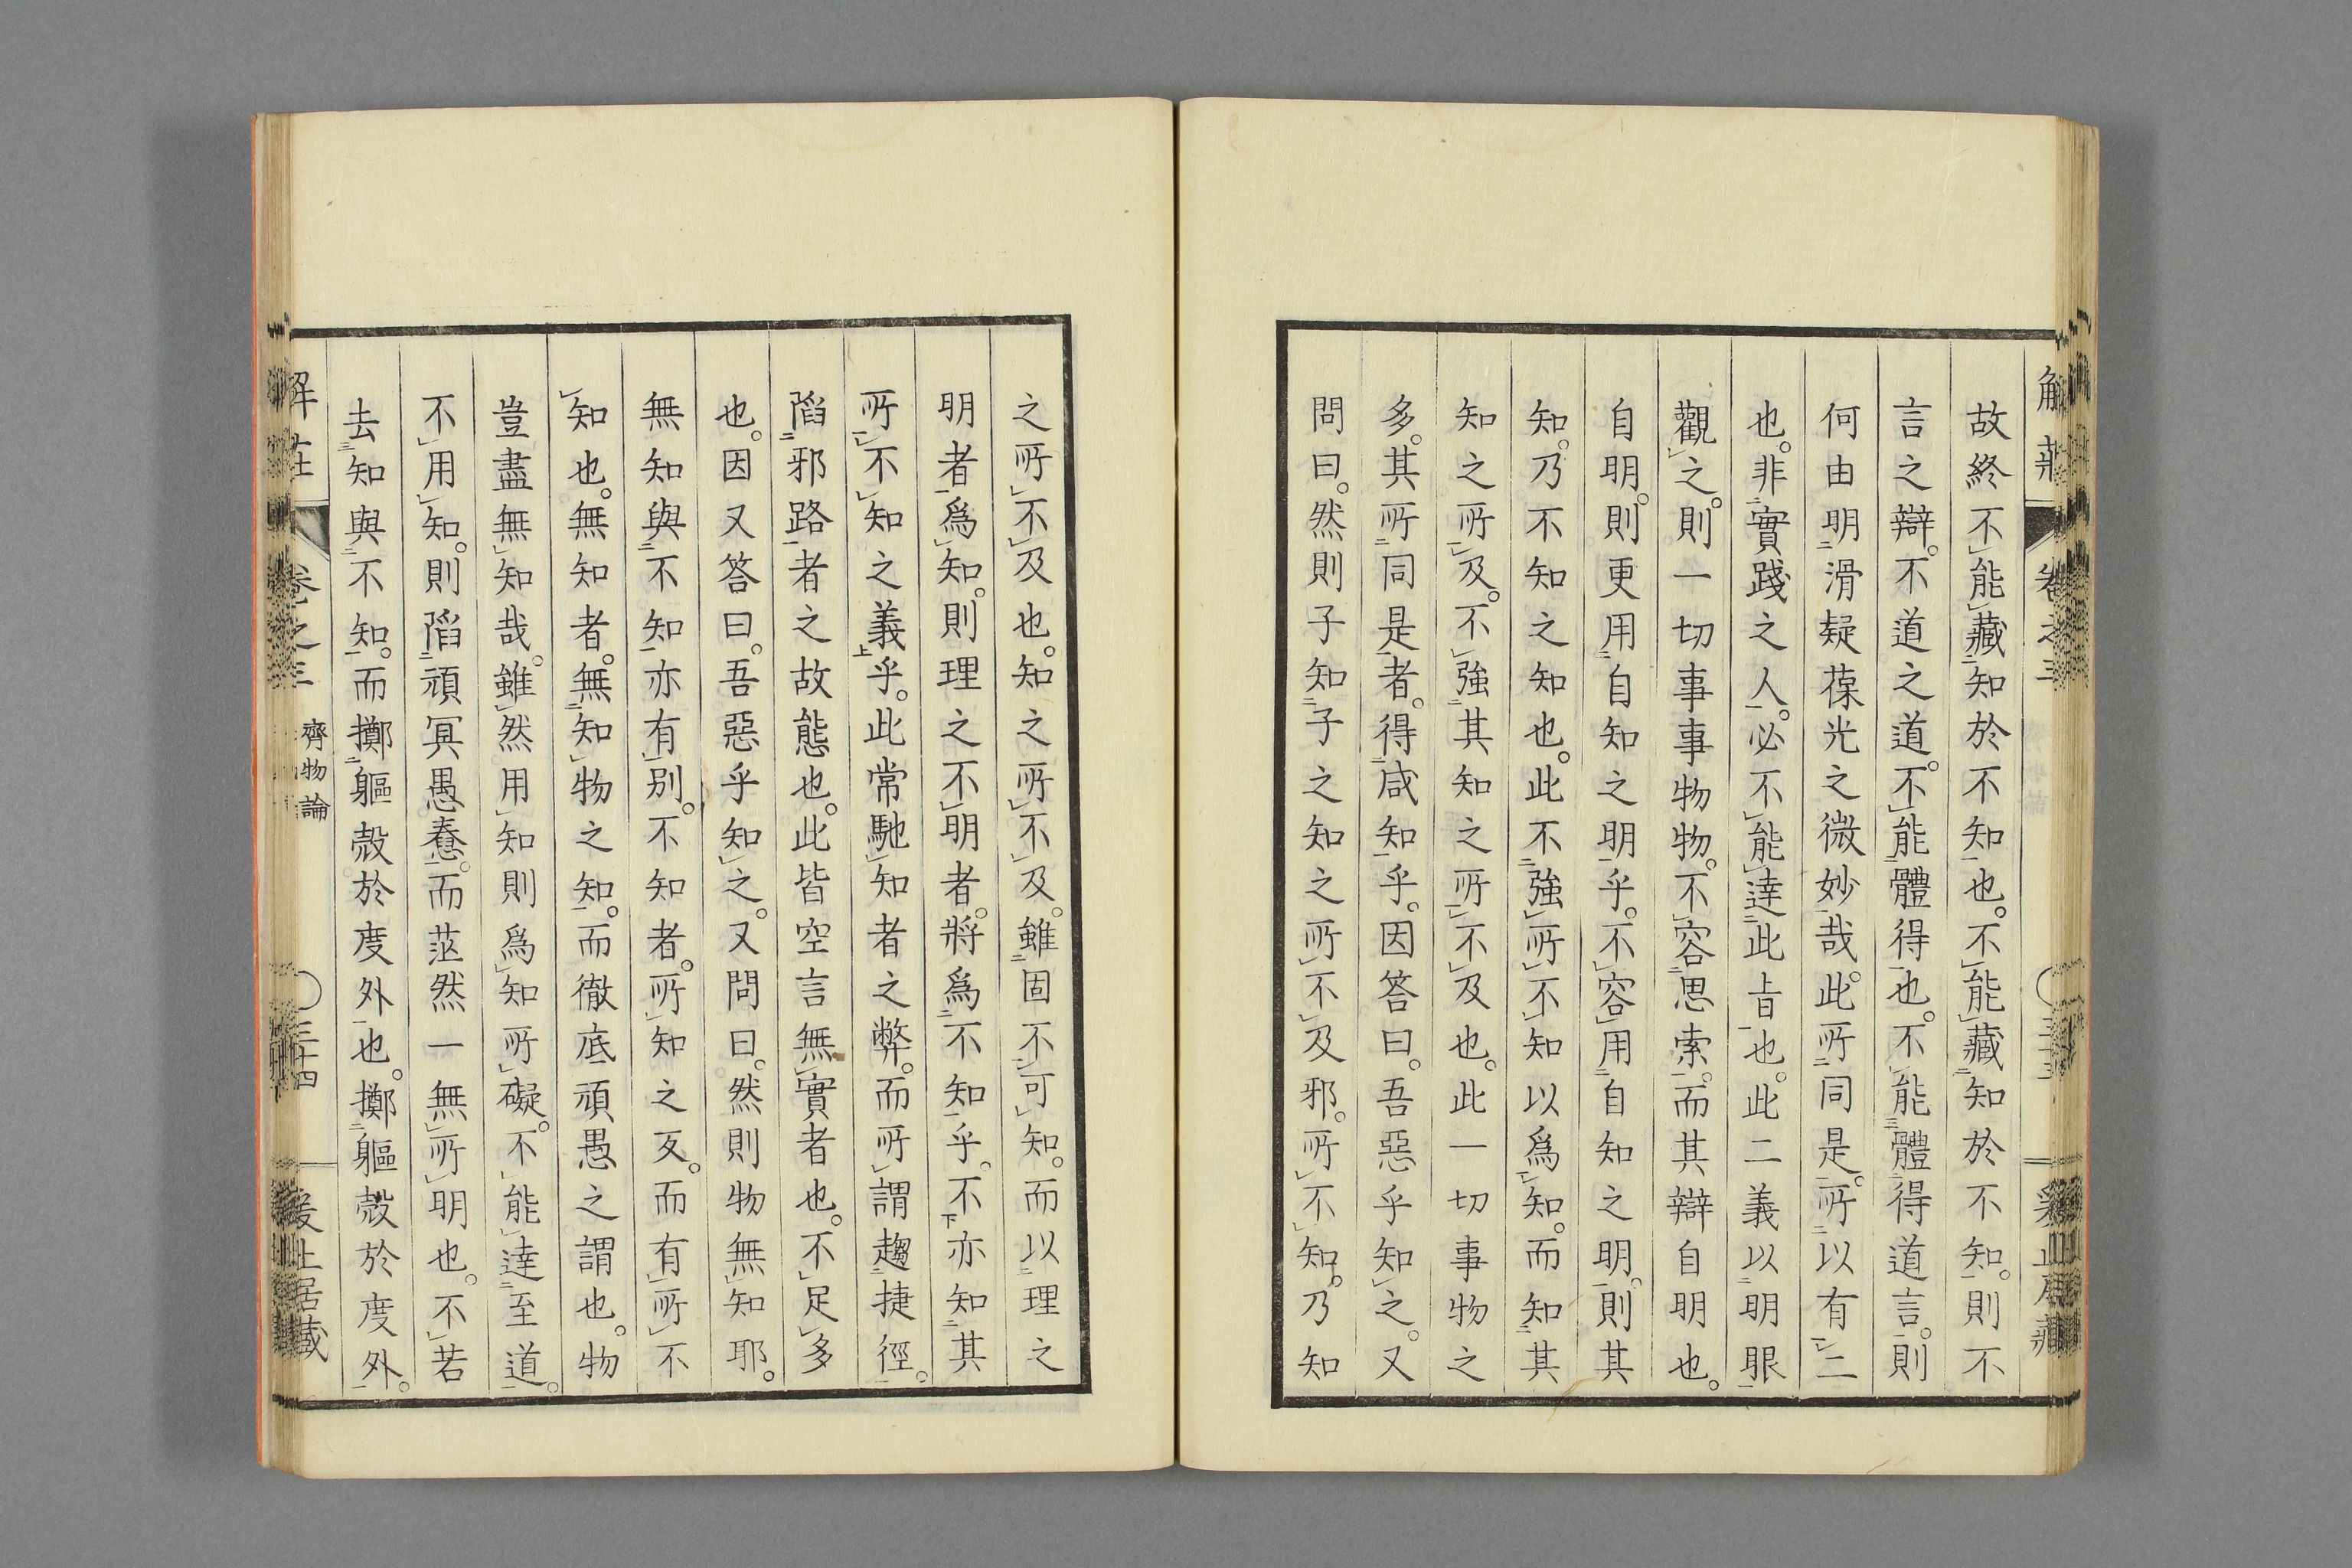 故終不能藏知於不知也。不能藏知於不知。則不
言之辯。不道之道。不能體得也。不能體得道言。則
何由明滑疑葆光之微妙哉。此所同是。所以有二
也。非實踐之人。必不能達此旨也。此二義以明眼
觀之。則一切事事物物。不容思索。而其辯自明也。
自明。則更用自知之明乎。不容用自知之明。則其
知。乃不知之知也。此不強所不知以爲知。而知其
知之所及。不強其知之所不及也。此一切事物之
多。其所同是者。得咸知乎。因答曰。吾惡乎知之。又
問曰。然則子知子之知之所不及邪。所不知。乃知
之所不及也。知之所不及。雖固不可知。而以理之
明者爲知。則理之不明者。將爲不知乎。不亦知其
所不知之義乎。此常馳知者之弊。而所謂趨捷徑。
陷邪路者之故態也。此皆空言無實者也。不足多
也。因又答曰。吾惡乎知之。又問曰。然則物無知耶。
無知與不知亦有別。不知者。所知之反。而有所不
知也。無知者。無知物之知。而徹底頑愚之謂也。物
豈盡無知哉。雖然用知則爲知所礙。不能達至道。
不用知。則陷頑冥愚惷。而茫然一無所明也。不若
去知與不知。而擲軀殻於度外也。擲軀殻於度外。
解莊 卷之三 齊物論 三十四 居藏